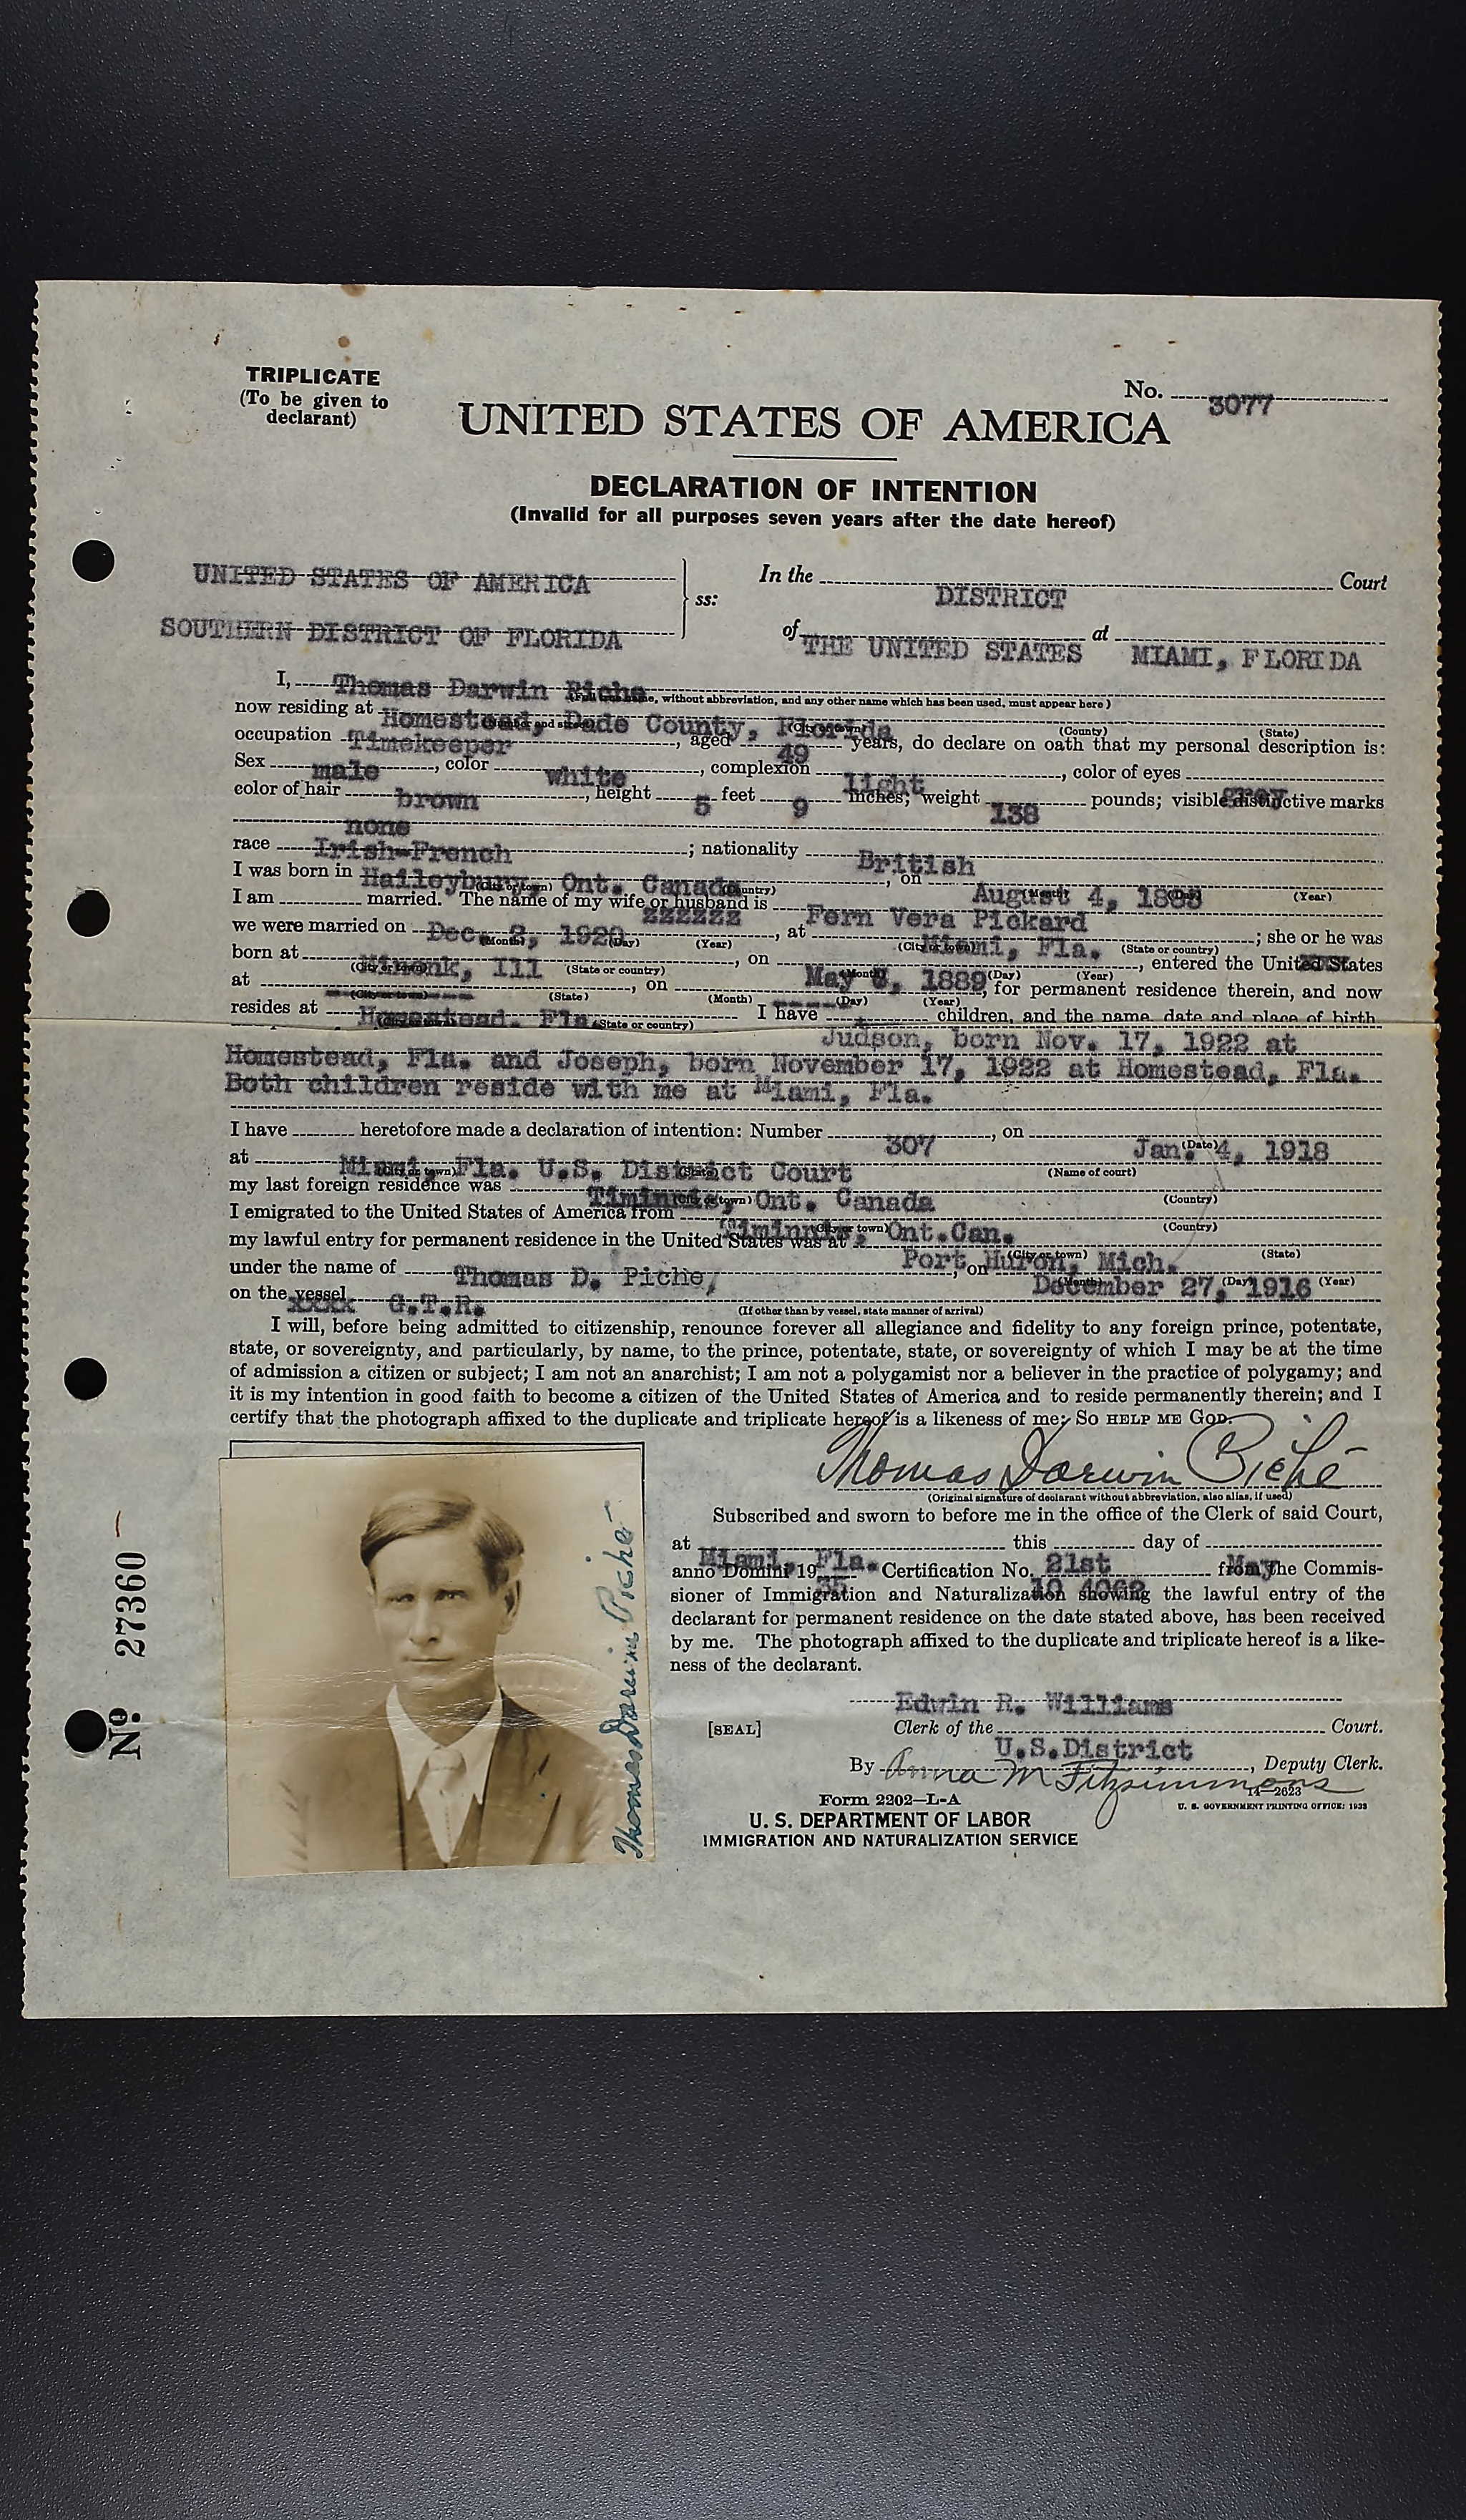 TRIPLICATE
(To be given to
declarant)
No. 3077
UNITED STATES OF AMERICA
DECLARATION OF INTENTION
(Invalid for all purposes seven years after the date hereof)
UNITED STATES OF AMERICA
SOUTHERN DISTRICT OF FLORIDA
ss:
In the DISTRICT Court
of THE UNITED STATES at MIAMI, FLORIDA
I, Thomas Darwin Piche
(Full true name, without abbreviation, and any other name which has been used, must appear here)
now residing at Homestead, Dade County, Florida
(Number and street) (City or town) (County) (State)
occupation Timekeeper, aged 49 years, do declare on oath that my personal description is:
Sex male, color white, complexion light, color of eyes grey
color of hair brown, height 5 feet 9 inches; weight 138 pounds; visible distinctive marks
none
race Irish-French; nationality British
I was born in Haileybury, Ont. Canada, on August 4, 1888
(City or town) (Country) (Month) (Day) (Year)
I am married. The name of my wife or husband is Fern Vera Pickard
zzzzzz
we were married on Dec. 2, 1920, at Miami, Fla.; she or he was
(Month) (Day) (Year) (City or town) (State or country)
born at Minonk, Ill, on May 6, 1889, entered the United States
(City or town) (State or country) (Month) (Day) (Year)
at, on, for permanent residence therein, and now
(City or town) (State) (Month) (Day) (Year)
resides at Homestead, Fla. I have children, and the name, date and place of birth
(City or town) (State or country)
Judson, born Nov. 17, 1922 at
Homestead, Fla. and Joseph, born November 17, 1922 at Homestead, Fla.
Both children reside with me at Miami, Fla.
I have heretofore made a declaration of intention: Number 307, on Jan. 4, 1918
(Date)
at Miami, Fla. U.S. District Court
(City or town) (State) (Name of court)
my last foreign residence was Timinnis, Ont. Canada
(City or town) (Country)
I emigrated to the United States of America from Timinnis, Ont.Can.
(City or town) (Country)
my lawful entry for permanent residence in the United States was at Port Huron, Mich.
(City or town) (State)
under the name of Thomas D. Piche, on December 27, 1916
(Month) (Day) (Year)
on the vessel xxxx G.T.R.
(If other than by vessel, state manner of arrival)
I will, before being admitted to citizenship, renounce forever all allegiance and fidelity to any foreign prince, potentate,
state, or sovereignty, and particularly, by name, to the prince, potentate, state, or sovereignty of which I may be at the time
of admission a citizen or subject; I am not an anarchist; I am not a polygamist nor a believer in the practice of polygamy; and
it is my intention in good faith to become a citizen of the United States of America and to reside permanently therein; and I
certify that the photograph affixed to the duplicate and triplicate hereof is a likeness of me: SO HELP ME GOD.
Thomas Darwin Piché
(Original signature of declarant without abbreviation, also alias, if used)
Subscribed and sworn to before me in the office of the Clerk of said Court,
at Miami, Fla. this 21st day of May
anno Domini 1935 Certification No. 10 4062 from the Commis-
sioner of Immigration and Naturalization showing the lawful entry of the
declarant for permanent residence on the date stated above, has been received
by me. The photograph affixed to the duplicate and triplicate hereof is a like-
ness of the declarant.
Edwin R. Williams
[SEAL] Clerk of the U.S.District Court.
By Anna M Fitzsimmons, Deputy Clerk.
14—2623
U. S. GOVERNMENT PRINTING OFFICE: 1933
Form 2202—L-A
U. S. DEPARTMENT OF LABOR
IMMIGRATION AND NATURALIZATION SERVICE
Thomas Darwin Piché
No. 27360